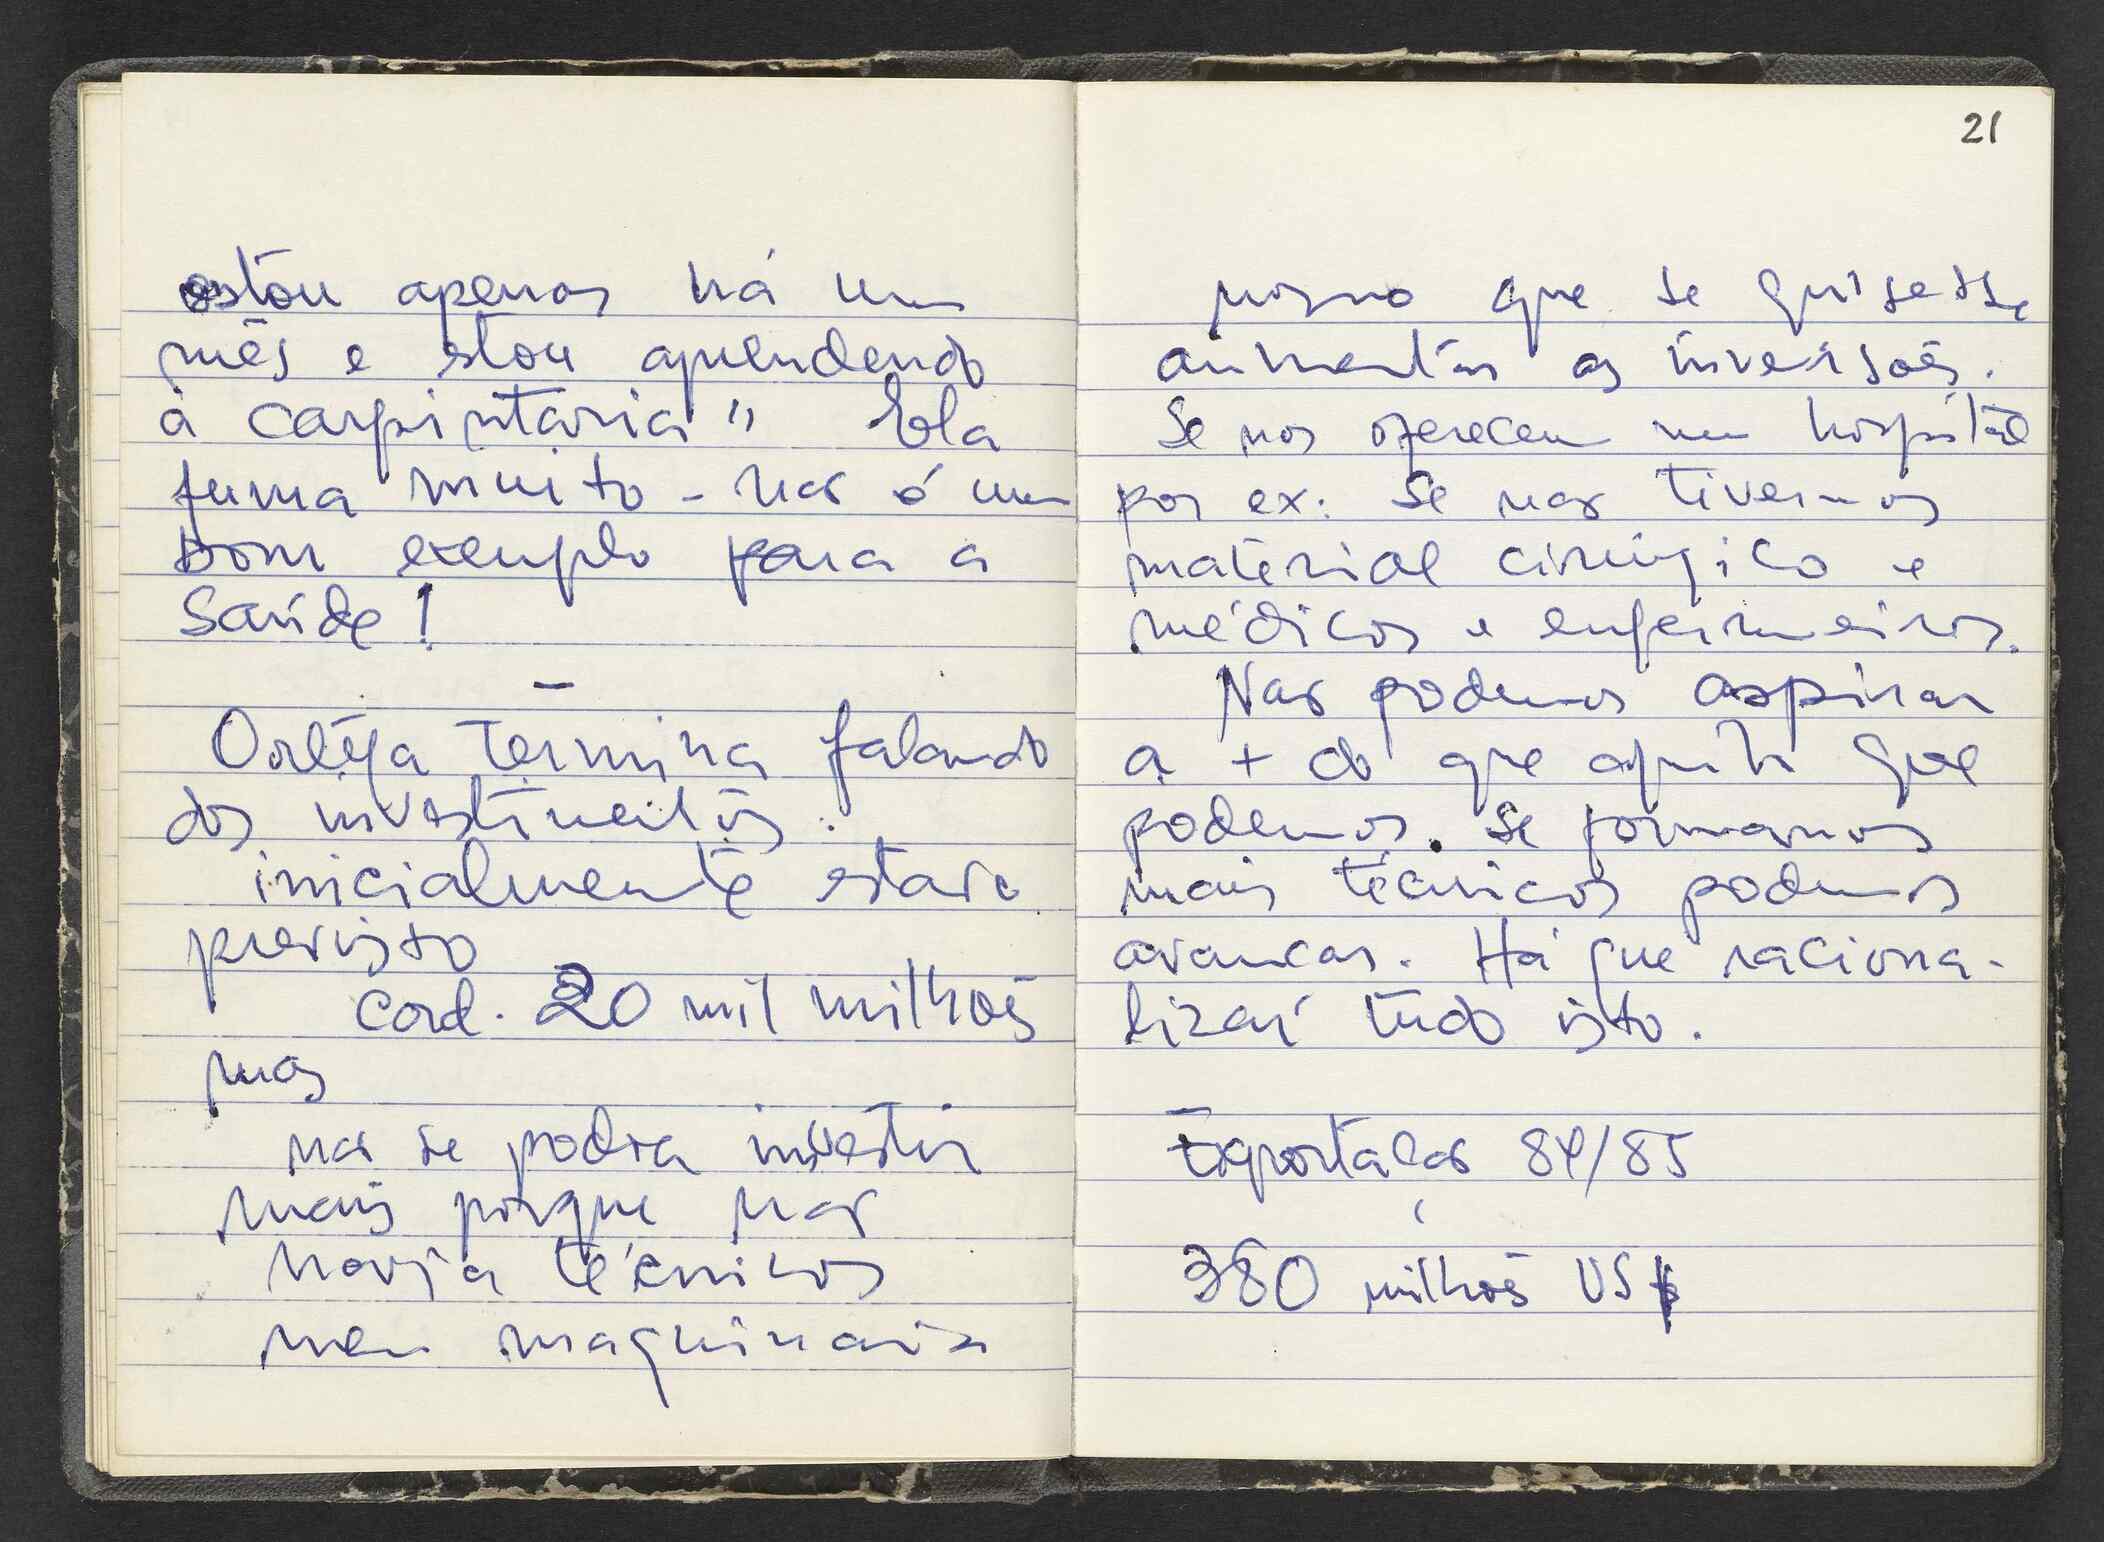 estou apenas há um
mês e estou aprendendo
a carpintaria" Ela
fuma muito - nao é um
bom exemplo para a
Saúde!
—
Ortega termina falando
dos investimentos:
inicialmente estava
previsto
Cord. 20 mil milhoes
mas
nao se podia investir
mais porque nao
havia técnicos
nem maquinaria
21
mesmo que se quisesse
aumentar as inversoes.
Se nos oferecem um hospital
por ex: se nao tivermos
material cirúrgico e
médicos e enfermeiros.
Nao podemos aspirar
a + do que aquilo que
podemos. Se formamos
mais técnicos podemos
avancar. Há que raciona-
lizar tudo isto.
Exportacao 84/85
380 milhoes US$